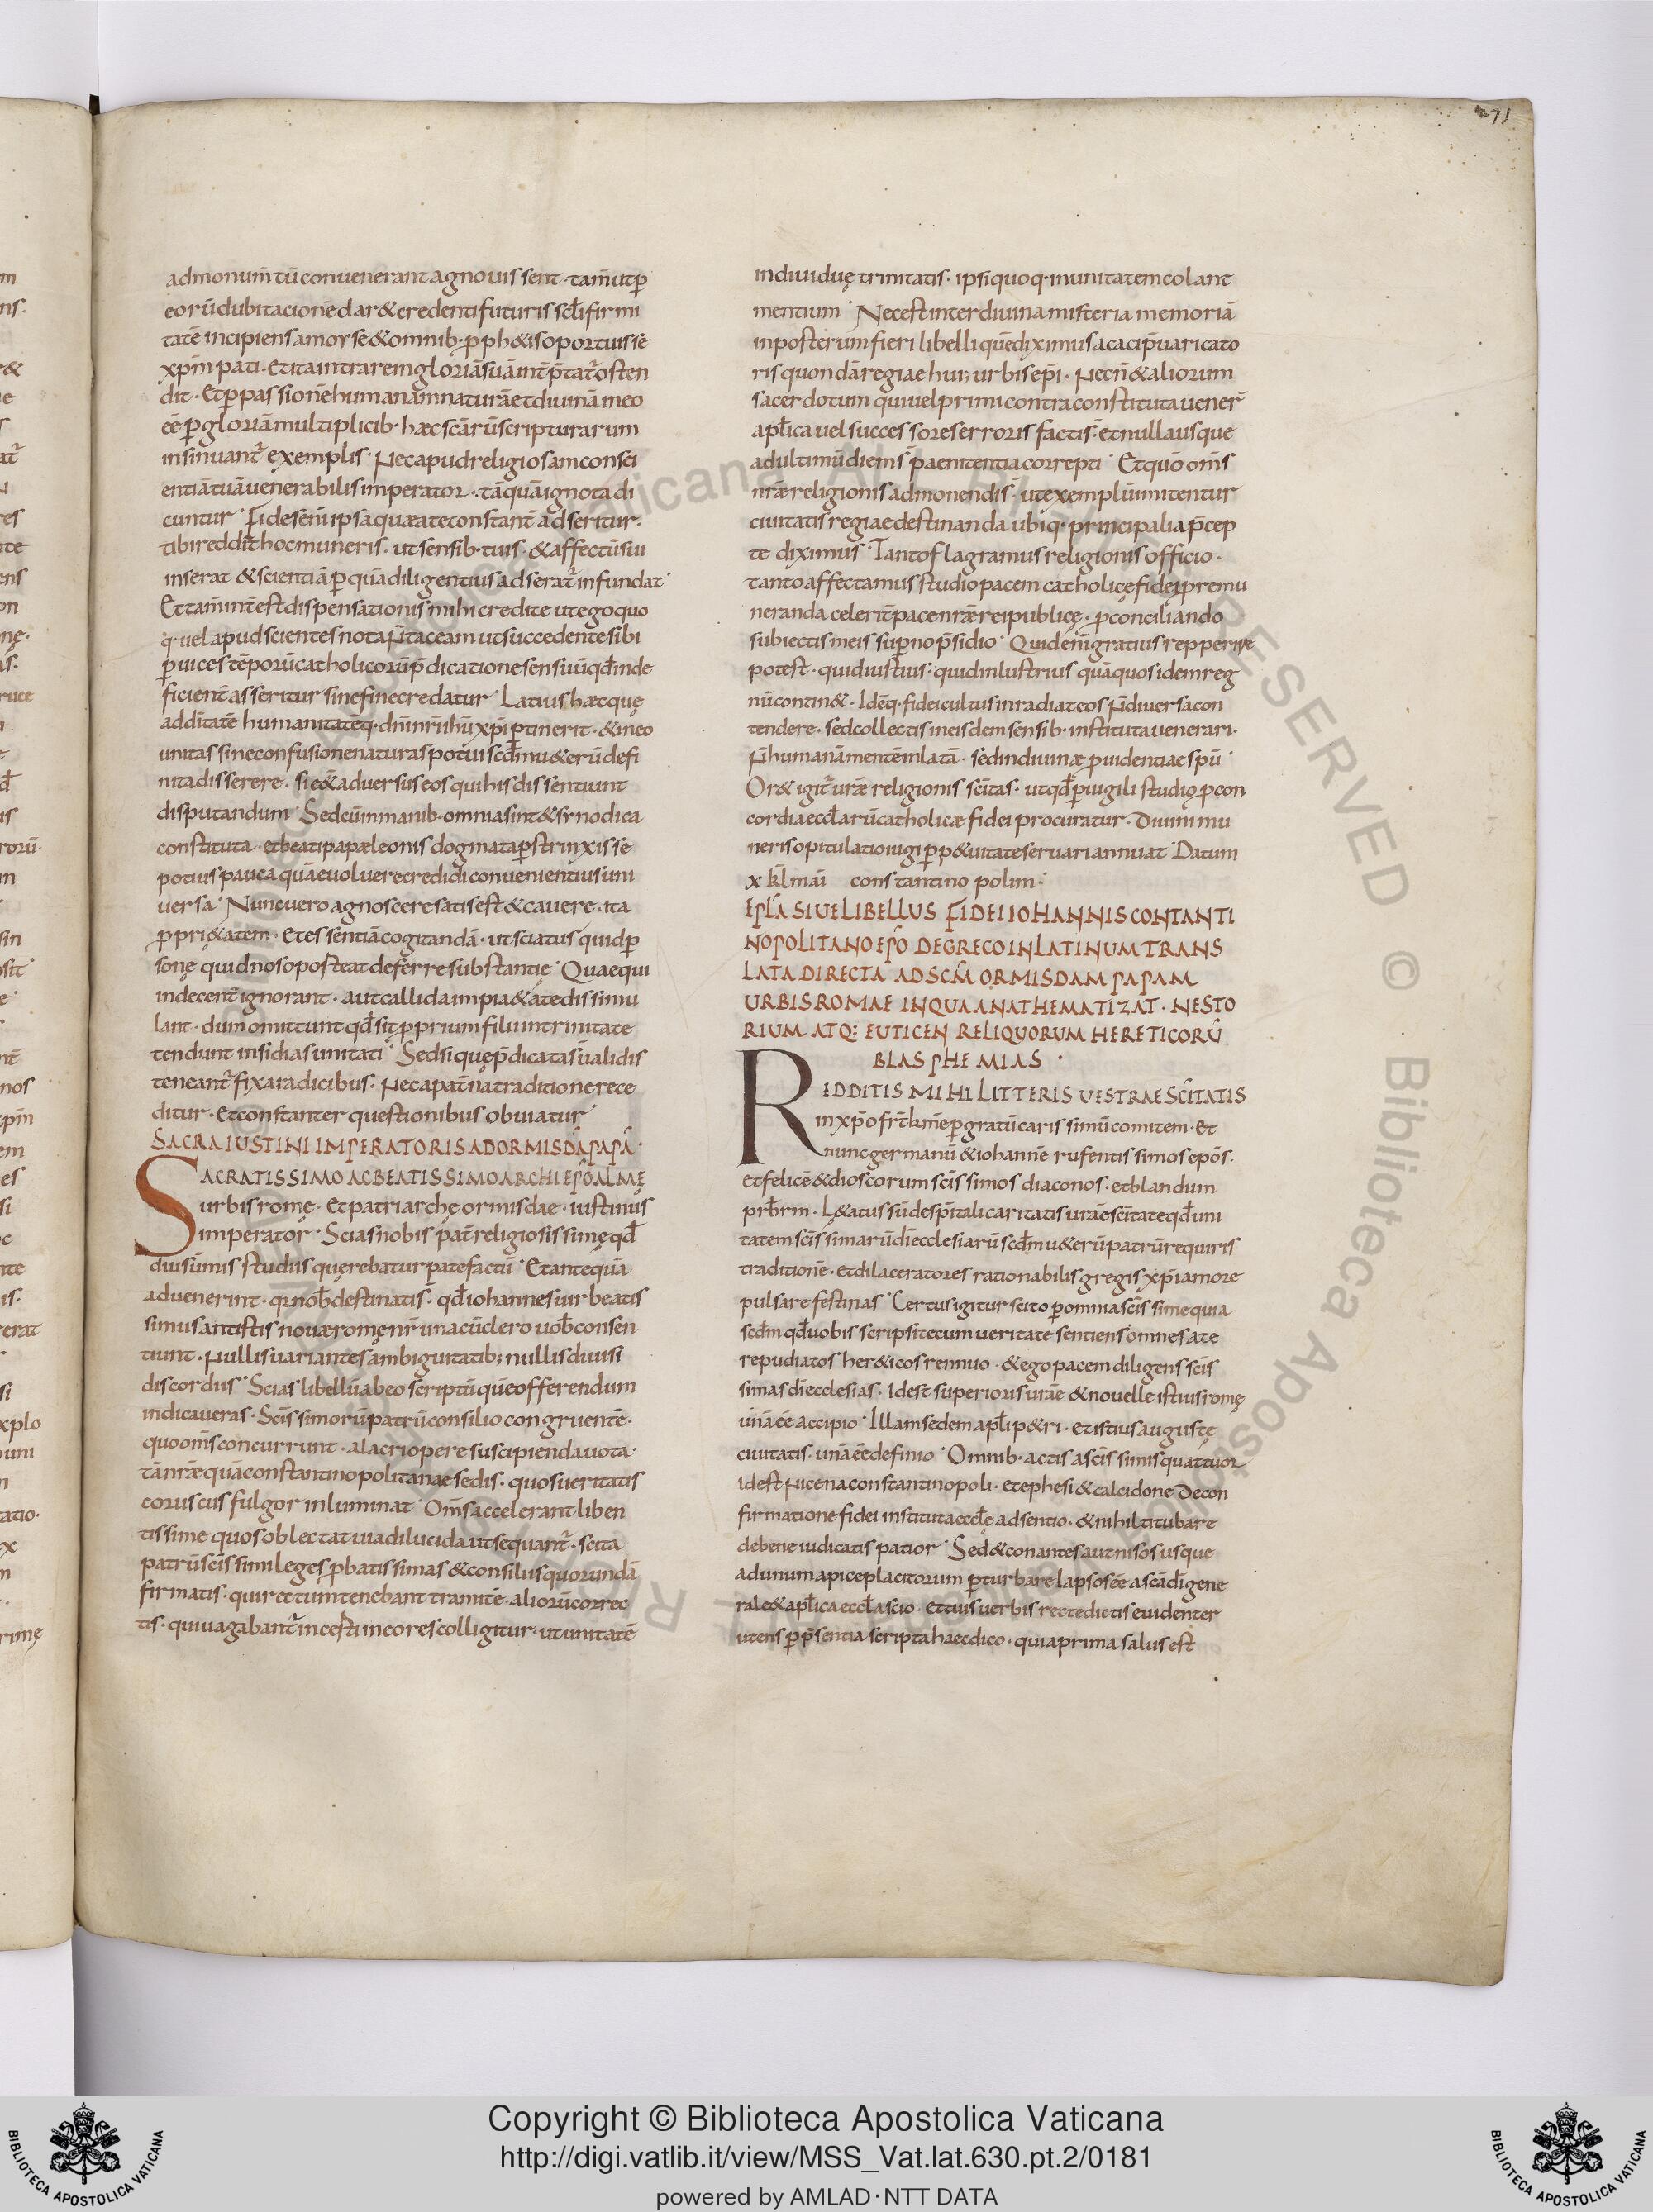 271
admonum̄tū conuenerant agnouissent · tam̄ utp̄
eorū dubitacionē dar& credenti futuris scl̄i firmi
tatē incipiens a moyse & omnib· p̱ph&is oportuisse
xp̄m pati · et ita intrare in gloriā suā int̄p̄tat̄r osten
dit · Et p̱ passionē humanam naturā et diuinā in eo
eē p̱ gloriā multiplicib· hæc scārū scripturarum
insinuant̄ exemplis · Nec apud religiosam consci
entiā tuā uenerabilis imperator · tāquā ignota di
cuntur · Fides eni ipsa quæ a te constant̄ adseritur ·
tibi reddit hoc muneris · ut sensib· tuis · & affectū sui
inserat & scientiā p̱ quā diligentius adserat̄ infundat
Et tam̄ int̄ est dispensationis mihi credite ut ego quo
q· uel apud scientes nota n̄ taceam ut succedente sibi
p̱ uices tēporū catholicorū p̄dicatione sensuū qd̄ inde
ficient̄ asseritur sine fine credatur · Latius hæc quę
ad dītatē humanitatēq· dn̄i nr̄i ihū xp̄i p̱tinerit · & in eo
unitas sine confusione naturas potui scd̄m u&erū defi
nita disserere · si e& aduersus eos qui his dissentiunt
disputandum · Sed cū in manib· omnia sint & synodica
constituta · et beati papæ leonis dogmata p̱strinxisse
potius pauca quā euoluere credidi conuenientius uni
uersa · Nunc uero agnoscere satis est & cauere · ita
p̱pri&atem · Et essentiā cogitandā · ut sciatus quid p̱
sonę quid nos oposteat deferre substantię · Quae qui
indecent̄ ignorant · aut callida impia&ate dissimu
lant · dum omittunt qd̄ sit p̱prium filii in trinitate
tendunt insidias unitati · Sed si quę p̄dicata sū ualidis
teneant̄ fixa radicibus · Nec a pat̄na traditione rece
ditur · Et constanter questionibus obuiatur
SACRA IUSTINI IMPERATORIS AD ORMISDĀ PAPĀ ·
SACRATISSIMO AC BEATISSIMO ARCHIEPŌ ALMĘ
urbis romę · Et patriarchę ormisdae · iustinus
imperator · Scias nobis pat̄ religiosissimę qd̄
diu sūmis studiis querebatur patefactū · Et antequā
aduenerint · q̄ nob̄ destinatis · qd̄ iohannes uir beatis
simus antistis nouæ romę nr̄ una cū clero uob̄ consen
tiunt · Nullis uariantes ambiguitatib; nullis diuisi
discordiis · Scias libellū ab eo scriptū quē offerendum
indicaueras · Scīssimorū patrū consilio congruentē ·
quo om̄s concurrunt · alacri opere suscipienda uota ·
tā nrǣ quā constantinopolitanae sedis · quos ueritatis
coruscus fulgor inluminat · Om̄s accelerant liben
tissime quos oblectat uia dilucida ut sequant̄ · scita
patrū scīssimi leges p̱batissimas & consiliis quorundā
firmatis · qui rectum tenebant tramitē · aliorū correc
tis · qui uagabant̄ incesti in eo res colligitur · ut unitatē
indiuiduę trinitatis · ipsi quoq· in unitatem colant
mentium · Nec est inter diuina misteria memoriā
in posterum fieri libelli quē diximus acaci p̄uaricato
ris quondā regiae hui; urbis ep̄i · Necn̄ & aliorum
sacerdotum qui uel primi contra constituta uener̄
apl̄ica uel successores erroris factis · et nulla usque
ad ultimū diem s̄ paenitentia correpti · Et quō om̄s
nrǣ religionis admonendis · ut exemplū imitentur
ciuitatis regiae destinanda ubiq· principalia p̄cep
te diximus · Tanto flagramus religionis officio ·
tanto affectamus studio pacem catholicę fidei p̱ remu
neranda celerit̄ pace nrǣ rei publicę · p̱ conciliando
subiectis meis sup̱no p̄sidio · Quid enī gratius repperire
potest · quid iustius · quid inlustrius quā quos idem reg
nū contin& · Idēq· fidei cultus inradiat eos n̄ diuersa con
tendere · sed collectis in eisdem sensib· instituta uenerari ·
n̄ humanā mentē inlatā · sed in diuinæ p̱uidentiae spū ·
Or& igit̄ urǣ religionis scītas · ut qd̄ p̱uigili studio p̱ con
cordia eccl̄arū catholicæ fidei procuratur · Diuini mu
neris opitulatio iugi p̱p&uitate seruari annuat · Datum
x kl̄ mai constantinopolim ·
EPLĀ SIUE LIBELLUS FIDEI IOHANNIS CONTANTI
NOPOLITANO EPŌ DE GRECO IN LATINUM TRANS
LATA DIRECTA AD SCM̄ ORMISDAM PAPAM
URBIS ROMAE IN QUA ANATHEMATIZAT · NESTO
RIUM ATQ: EUTICEN RELIQUORUM HERETICORŪ
BLASPHEMIAS ·
REDDITIS MIHI LITTERIS UESTRAE SCĪTATIS
in xp̄o fr̄ km̄e p̱ gratū carissimū comitem · Et
nunc germanū & iohannē rufentissimos epōs ·
et felicē & dioscorum scīssimos diaconos · et blandum
prb̄rm · L&atus sū de sp̄itali caritatis urǣ scītate qd̄ uni
tatem scīssimarū dī ecclesiarū scd̄m u&erū patrū requiris
traditionē · et dilaceratores rationabilis gregis xp̄i amore
pulsare festinas · Certus igitur scito p̱ omnia scīssime quia
scd̄m qd̄ uobis scripsi tecum ueritate sentiens omnes a te
repudiatos her&icos rennuo · & ego pacem diligens scīs
simas dī ecclesias · Idest superioris urǣ & nouelle istius romę
unā eē accipio · Illam sedem apl̄i p&ri · et istius augustę
ciuitatis · unā eē definio · Omnib· actis a scīs simis quattuor
Idest nicena constantinopoli · et ephesi & calcidone De con
firmatione fidei instituta eccl̄ę adsentio · & nihil titubare
de bene iudicatis patior · Sed & conantes aut nisos usque
ad unum apice placitorum p̱turbare lapsos eē a scā dī gene
rale & apl̄ica eccl̄a scio · et tuis uerbis recte dictis euidenter
utens p̱ p̄sentia scripta haec dico · quia prima salus est
Copyright © Biblioteca Apostolica Vaticana
http://digi.vatlib.it/view/MSS_Vat.lat.630.pt.2/0181
powered by AMLAD·NTT DATA
BIBLIOTECA APOSTOLICA VATICANA
BIBLIOTECA APOSTOLICA VATICANA